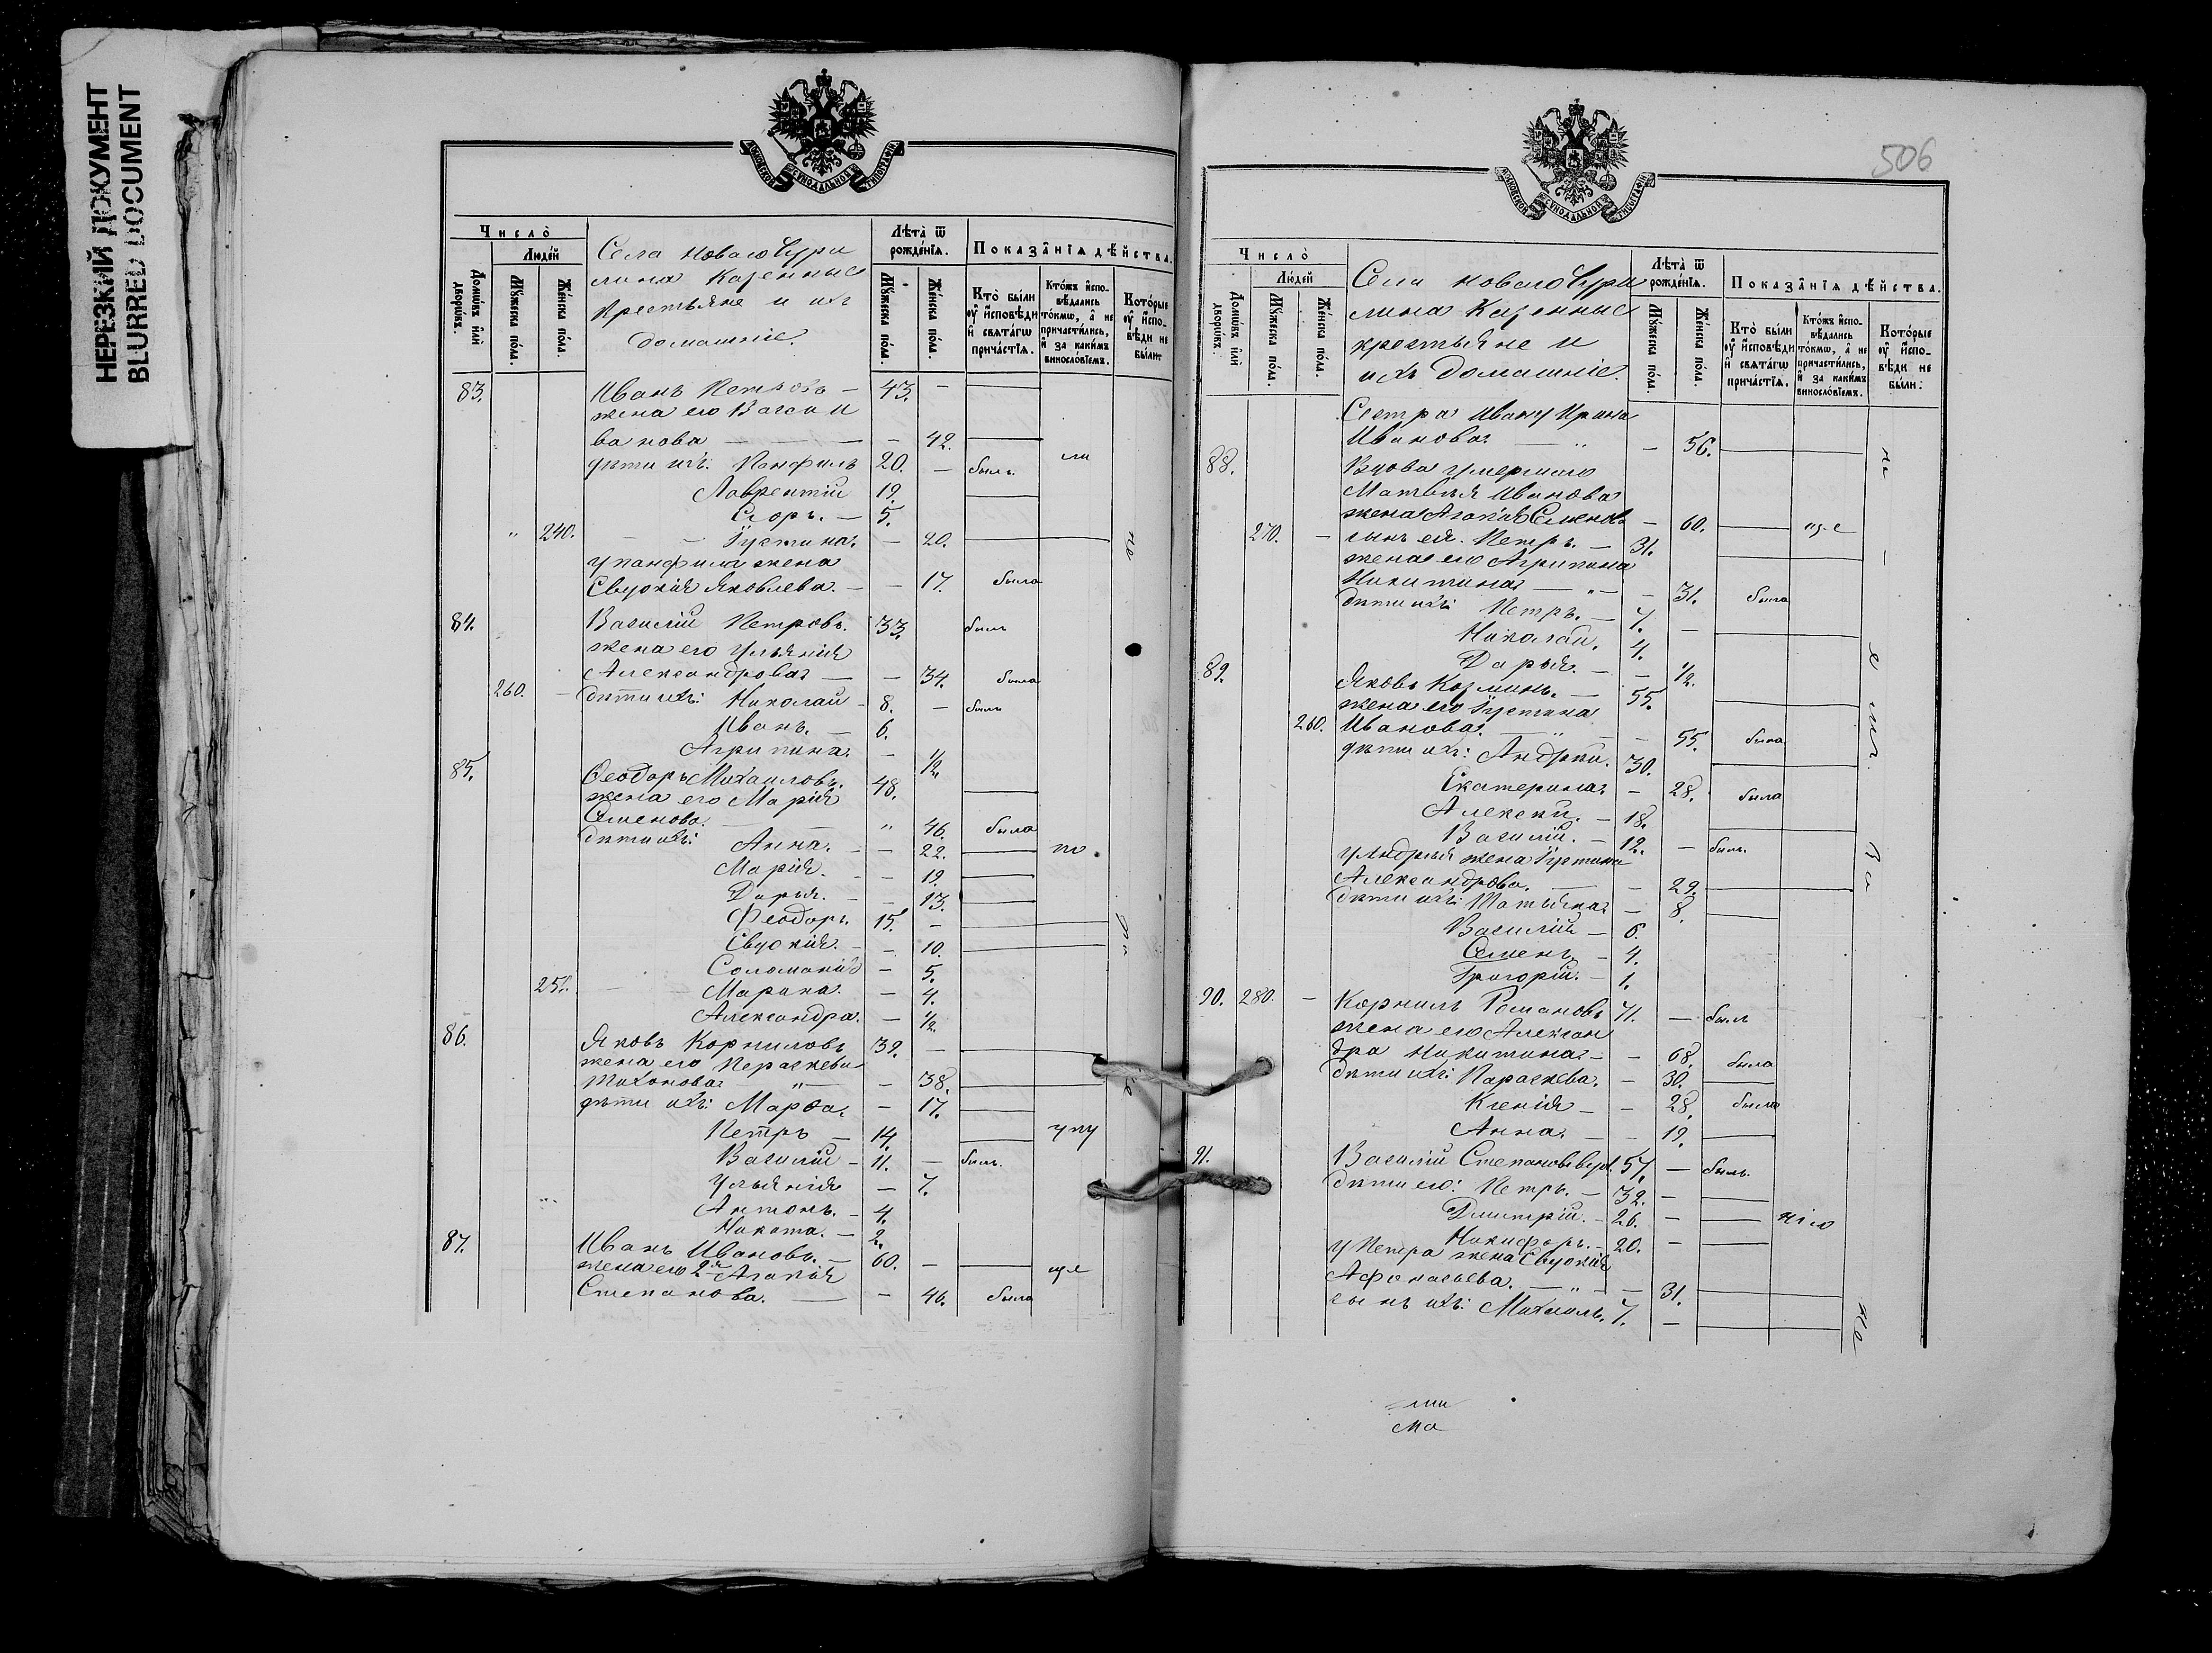 НЕРЕЗКИЙ ДОКУМЕНТ
BLURRED DOCUMENT
МОСКОВСКОЙ СѴНОДАЛЬНОЙ ТИПОГРАФІИ
Число
Людей
Домѡвъ или дворѡвъ.
Мꙋжеска пола.
Женска пола.
Села Новаго Чури
лина Казенные
крестьяне и ихъ
домашніе.
Лѣта ѿ рожденія.
Мꙋжеска пола.
Женска пола.
Показанія дѣйства.
Кто были оу исповѣди и свѧтагѡ причастїѧ.
Ктожъ исповѣдались токмѡ, а не причастились, и за какимъ винословїемъ.
Которые оу исповѣди не были
83. Иванъ Петровъ — 43. —
жена его Васса И
ванова — — — — 42.
дѣти ихъ: Панфилъ 20. — былъ.
Лаврентій 19.
Егоръ. — 5.
" 240. — — Іустина. — 20.
у Панфила жена
Евдокія Яковлева. — — 17. была
84. Василій Петровъ. 33. былъ
жена его Ульянія
Александрова — — 34. была
260. — дѣти ихъ: Николай — 8. — былъ
Иванъ. — 6.
Агрипина. — 1/2.
85. Ѳеодоръ Михаиловъ. 48.
жена его Марія
Семенова. — " 46. была
дѣти ихъ: Анна. — — 22. по
Марія. — — 19.
Дарья. — — 13.
Ѳеодоръ. 15. —
Евдокія. — — 10.
Соломанія — 5.
250. — — Марина. — 4.
Александра. — 1/2.
86. Яковъ Корниловъ 39. —
жена его Параскева
Тихонова " — 38.
дѣти ихъ: Марѳа. — 17.
Петръ — 14. упу
Василій — 11. — былъ.
Ульянія — 7.
Антонъ. — 4.
Никита. — 2.
87. Иванъ Ивановъ. — 60. —
жена его 2я Агапія ще
Степанова. — — 46. была
506
МОСКОВСКОЙ СѴНОДАЛЬНОЙ ТИПОГРАФІИ
Число
Людей
Домѡвъ или дворѡвъ.
Мꙋжеска пола.
Женска пола.
Села Новаго Чури
лина Казенные
крестьяне и
ихъ домашніе.
Лѣта ѿ рожденія.
Мꙋжеска пола.
Женска пола.
Показанія дѣйства.
Кто были оу исповѣди и свѧтагѡ причастїѧ.
Ктожъ исповѣдались токмѡ, а не причастились, и за какимъ винословїемъ.
Которые оу исповѣди не были.
Сестра Ивану Ирина
Иванова — " — 56.
88. Вдова умершаго
Матвѣя Иванова
жена Агапія Семенова — 60.
270. — сынъ ея. Петръ. — 31.
жена его Агрипина
Никитина — " — — 31. была
дѣти ихъ: Петръ. — 7. —
Николай. 4.
Дарья. — — 1/2.
89. Яковъ Козминъ. — 55.
жена его Іустина
260. Иванова. — " — — 55. была
дѣти ихъ: Андрей. 30.
Екатерина. — 28. была
Алексѣй. — 18.
Василій. — 12. — былъ.
у Андрея жена Іустина
Александрова. — — 29.
дѣти ихъ: Татьяна. — 8.
Василій — 6.
Семенъ. — 4.
Григорій. — 1.
90. 280. — Корнилъ Романовъ 71. — былъ
жена его Алексан
дра Никитина — — 68. была
дѣти ихъ: Параскева. — 30.
Ксенія — — 28. была
Анна. — — 19.
91. Василій Степановъ вдов. 57. — былъ.
дѣти его: Петръ. — 32. —
Дмитрій. — 26. —
Никифоръ. — 20. —
у Петра жена Евдокія
Афонасьева. — " — — 31.
сынъ ихъ: Михаилъ. 7. —